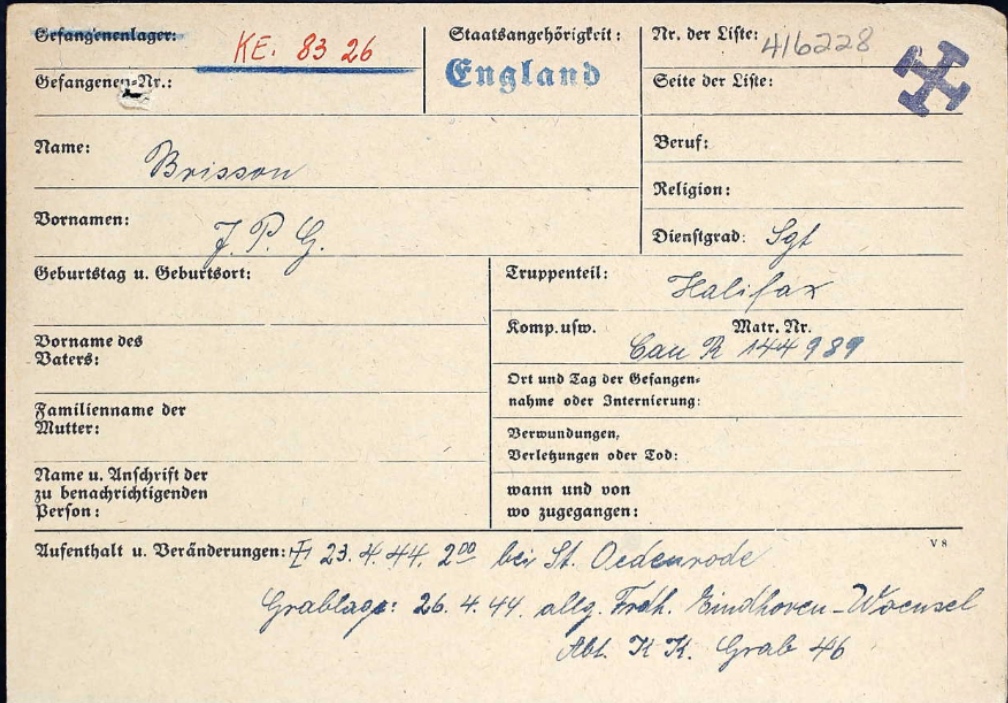 Gefangenenlager: KE. 83 26
Gefangenen-Nr.:
Staatsangehörigkeit:
England
Nr. der Liste: 416228
Seite der Liste:
Name: Brisson
Vornamen: J. P. G.
Beruf:
Religion:
Dienstgrad: Sgt
Geburtstag u. Geburtsort:
Vorname des
Vaters:
Familienname der
Mutter:
Name u. Anschrift der
zu benachrichtigenden
Person:
Truppenteil: Halifax
Komp. usw. Matr. Nr.
Can R 144989
Ort und Tag der Gefangen-
nahme oder Internierung:
Verwundungen,
Verletzungen oder Tod:
wann und von
wo zugegangen:
Aufenthalt u. Veränderungen: 23.4.44. 2⁰⁰ bei St. Oedenrode
V 8
Grablage: 26.4.44 allg. Frdh. Eindhoven-Woensel
Abt. K K. Grab 46